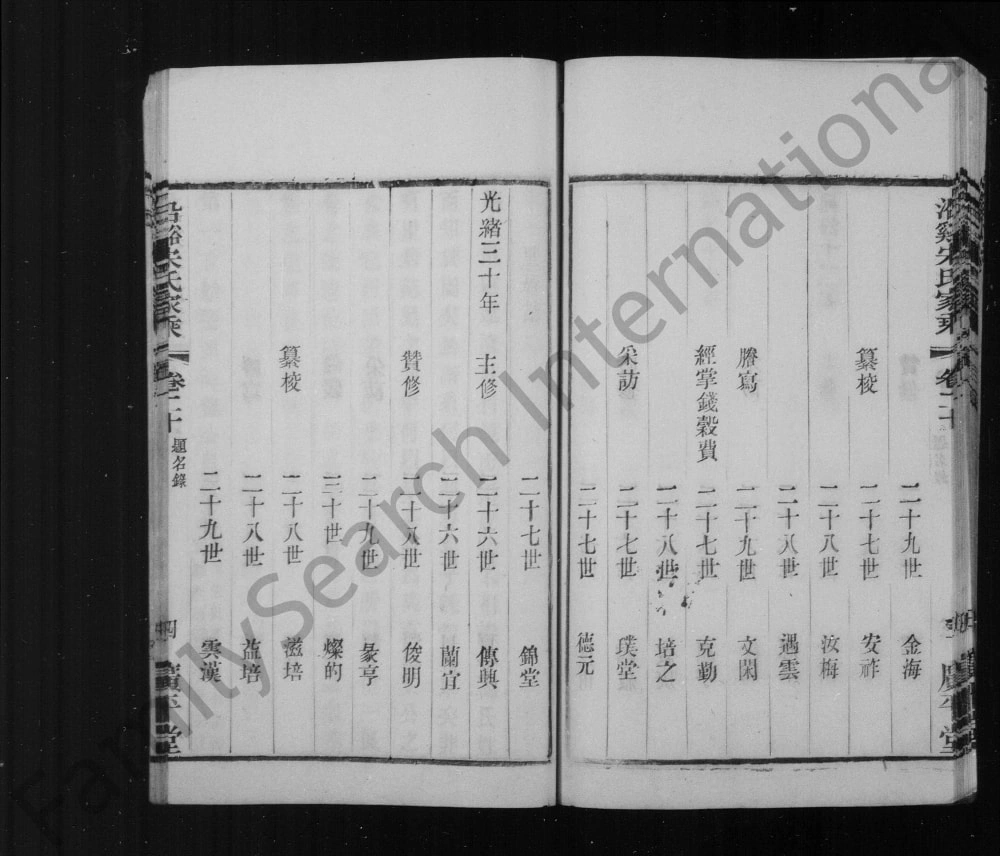 沿谿宋氏家乘
二十九世 金海
纂棱 二十七世 安祚
二十八世 汝梅
二十八世 遇雲
謄寫 二十九世 文閑
經掌錢穀費 二十七世 克勤
二十八世 培之
采訪 二十七世 璞堂
二十七世 德元
二十七世 錦堂
光緒三十年 主修 二十六世 傳興
二十六世 蘭宜
贊修 二十八世 俊明
二十九世 彖亨
三十世 燦的
纂棱 二十八世 滋培
二十八世 益培
二十九世 雲漢
沿谿宋氏家乘 卷二十 題名錄 廣平堂
FamilySearch International